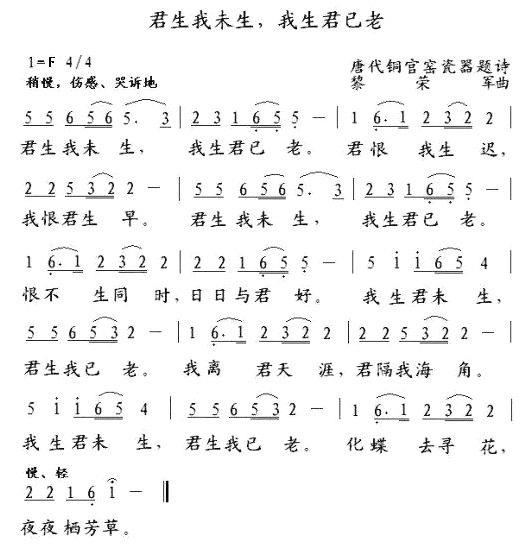 君生我未生，我生君已老
1=F 4/4
唐代铜官窑瓷器题诗
稍慢，伤感、哭诉地
黎荣军曲
5 5 6 5 6 5. 3 | 2 3 1 6 5 5 － | 1 6. 1 2 3 2 2 |
君生我未 生， 我生君已 老。 君恨 我生 迟，
2 2 5 3 2 2 － | 5 5 6 5 6 5. 3 | 2 3 1 6 5 5 － |
我恨君生 早。 君生我未 生， 我生君已 老。
1 6. 1 2 3 2 2 | 2 2 1 6 5 5 － | 5 1 1 6 5 4 |
恨不 生同 时，日日与君 好。 我生君未 生，
5 5 6 5 3 2 － | 1 6. 1 2 3 2 2 | 2 2 5 3 2 2 － |
君生我已 老。 我离 君天 涯，君隔我海 角。
5 1 1 6 5 4 | 5 5 6 5 3 2 － | 1 6. 1 2 3 2 2 |
我生君未 生，君生我已 老。 化蝶 去寻 花，
慢、轻
2 2 1 6 1 － ‖
夜夜栖芳草。